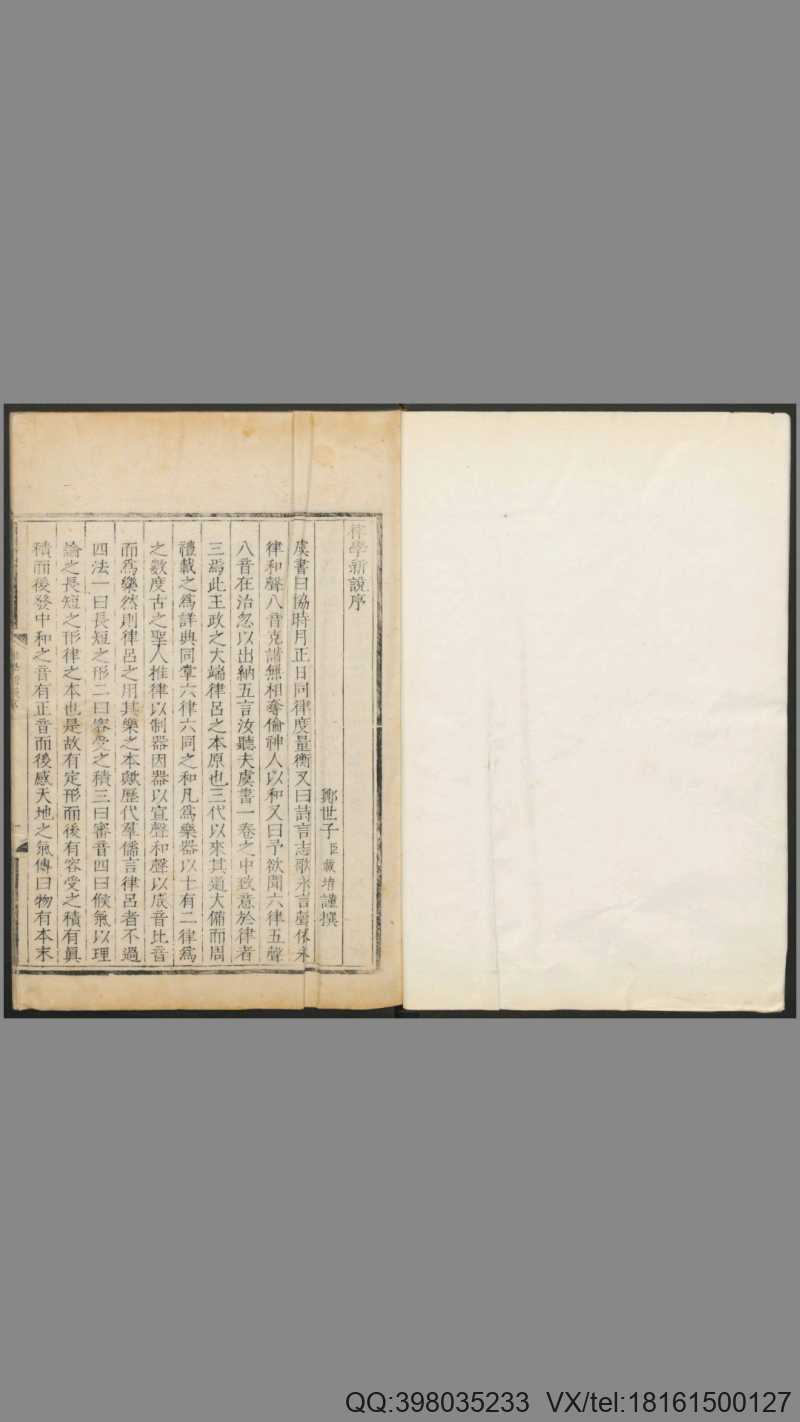 律學新說序
鄭世子臣載堉謹撰
虞書曰協時月正日同律度量衡又曰詩言志歌永言聲依永
律和聲八音克諧無相奪倫神人以和又曰予欲聞六律五聲
八音在治忽以出納五言汝聽夫虞書一卷之中致意於律者
三焉此王政之大端律呂之本原也三代以來其道大備而周
禮載之為詳典同掌六律六同之和凡為樂器以十有二律為
之數度古之聖人推律以制器因器以宣聲和聲以成音比音
而為樂然則律呂之用其樂之本歟歷代羣儒言律呂者不過
四法一曰長短之形二曰容受之積三曰審音四曰候氣以理
論之長短之形律之本也是故有定形而後有容受之積有眞
積而後發中和之音有正音而後感天地之氣傳曰物有本末
QQ:398035233 VX/tel:18161500127